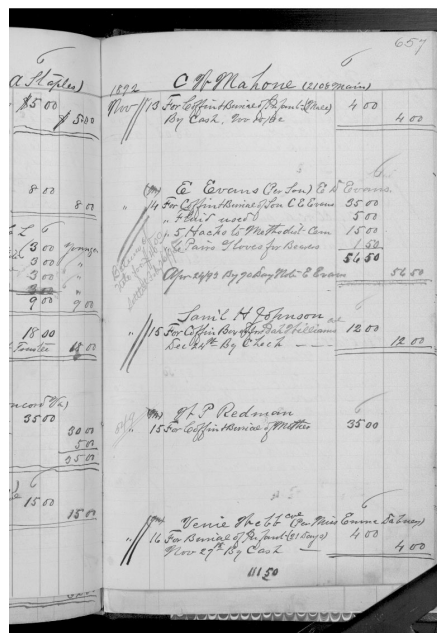 657
a Staples)
$5 00
$ 5 00
8 00
8 00
(3 00 younger
3 00 "
3 00 "
3 00 "
9 00 9 00
18 00
Trustee
oncord Va)
35 00
30 00
5 00
35 00
15 00
15 00
1892 C W Mahone (2108 Main)
Nov 13 For Coffin & Burial of Infant (Male) 4 00
By Cash, Nov 4 00
E Evans (Per Son) E D Evans
" 14 For Coffin & Burial of Son C E Evans 35 00
" Fluid used 5 00
" 5 Hacks to Methodist Cem 15 00
Pairs Gloves for Bearers 1 50
56 50
Apr 24/93 By 90 Day Note E Evans 56 50
Saml H Johnson
" 15 For Coffin Box Williams 12 00
Dec 24th By Check 12 00
W P Redman
" 15 For Coffin & Burial of Mother 35 00
Venie Webb (Per Miss Emma Dabney)
" 16 For Burial of Infant (21 Days) 4 00
Nov 29th By Cash 4 00
111 50